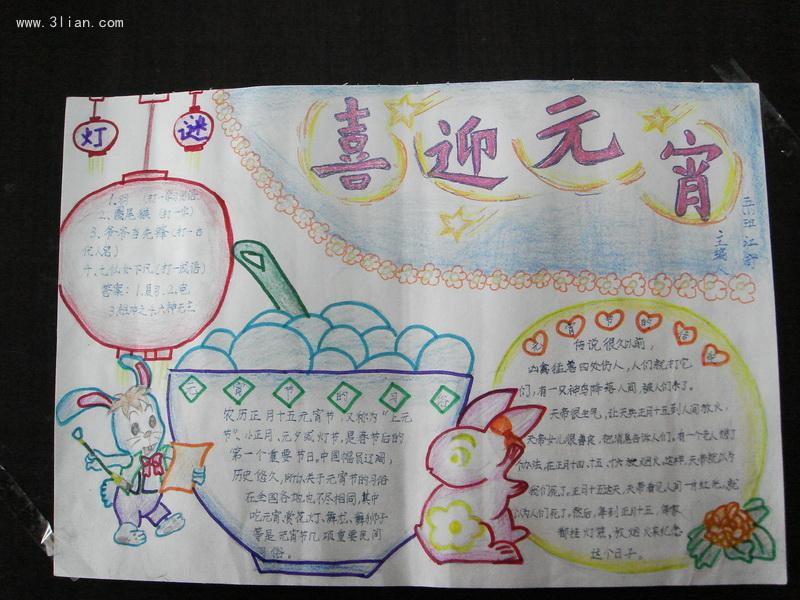 www.3lian.com
喜迎元宵
三(3)班 江
主编人
灯谜
2、圈尾猴（打一
3、爷爷当先锋（打一古
代人名）
4、七仙女下凡（打一成语）
答案：1. 2.电
3.祖冲之 4.六神无主
元宵节的习俗
农历正月十五元宵节，又称为“上元
节”、小正月、元夕或灯节，是春节后的
第一个重要节日。中国幅员辽阔，
历史悠久，所以关于元宵节的习俗
在全国各地也不尽相同，其中
吃元宵、赏花灯、舞龙、舞狮子
等是元宵节几项重要民间
习俗。
元宵节的传说
传说很久以前，
凶禽猛兽四处伤人，人们就打它
们，有一只神鸟降落人间，被人们杀了。
天帝很生气，让天兵正月十五到人间放火，
天帝女儿很善良，把消息告诉人们。有一个老人想了
办法，在正月十四、十五、十六放烟火。这样，天帝就以为
我们死了。正月十五这天，天帝看见人间一片红光，就
以为人们死了。然后，每到正月十五，家家
都挂灯笼，放烟火来纪念
这个日子。